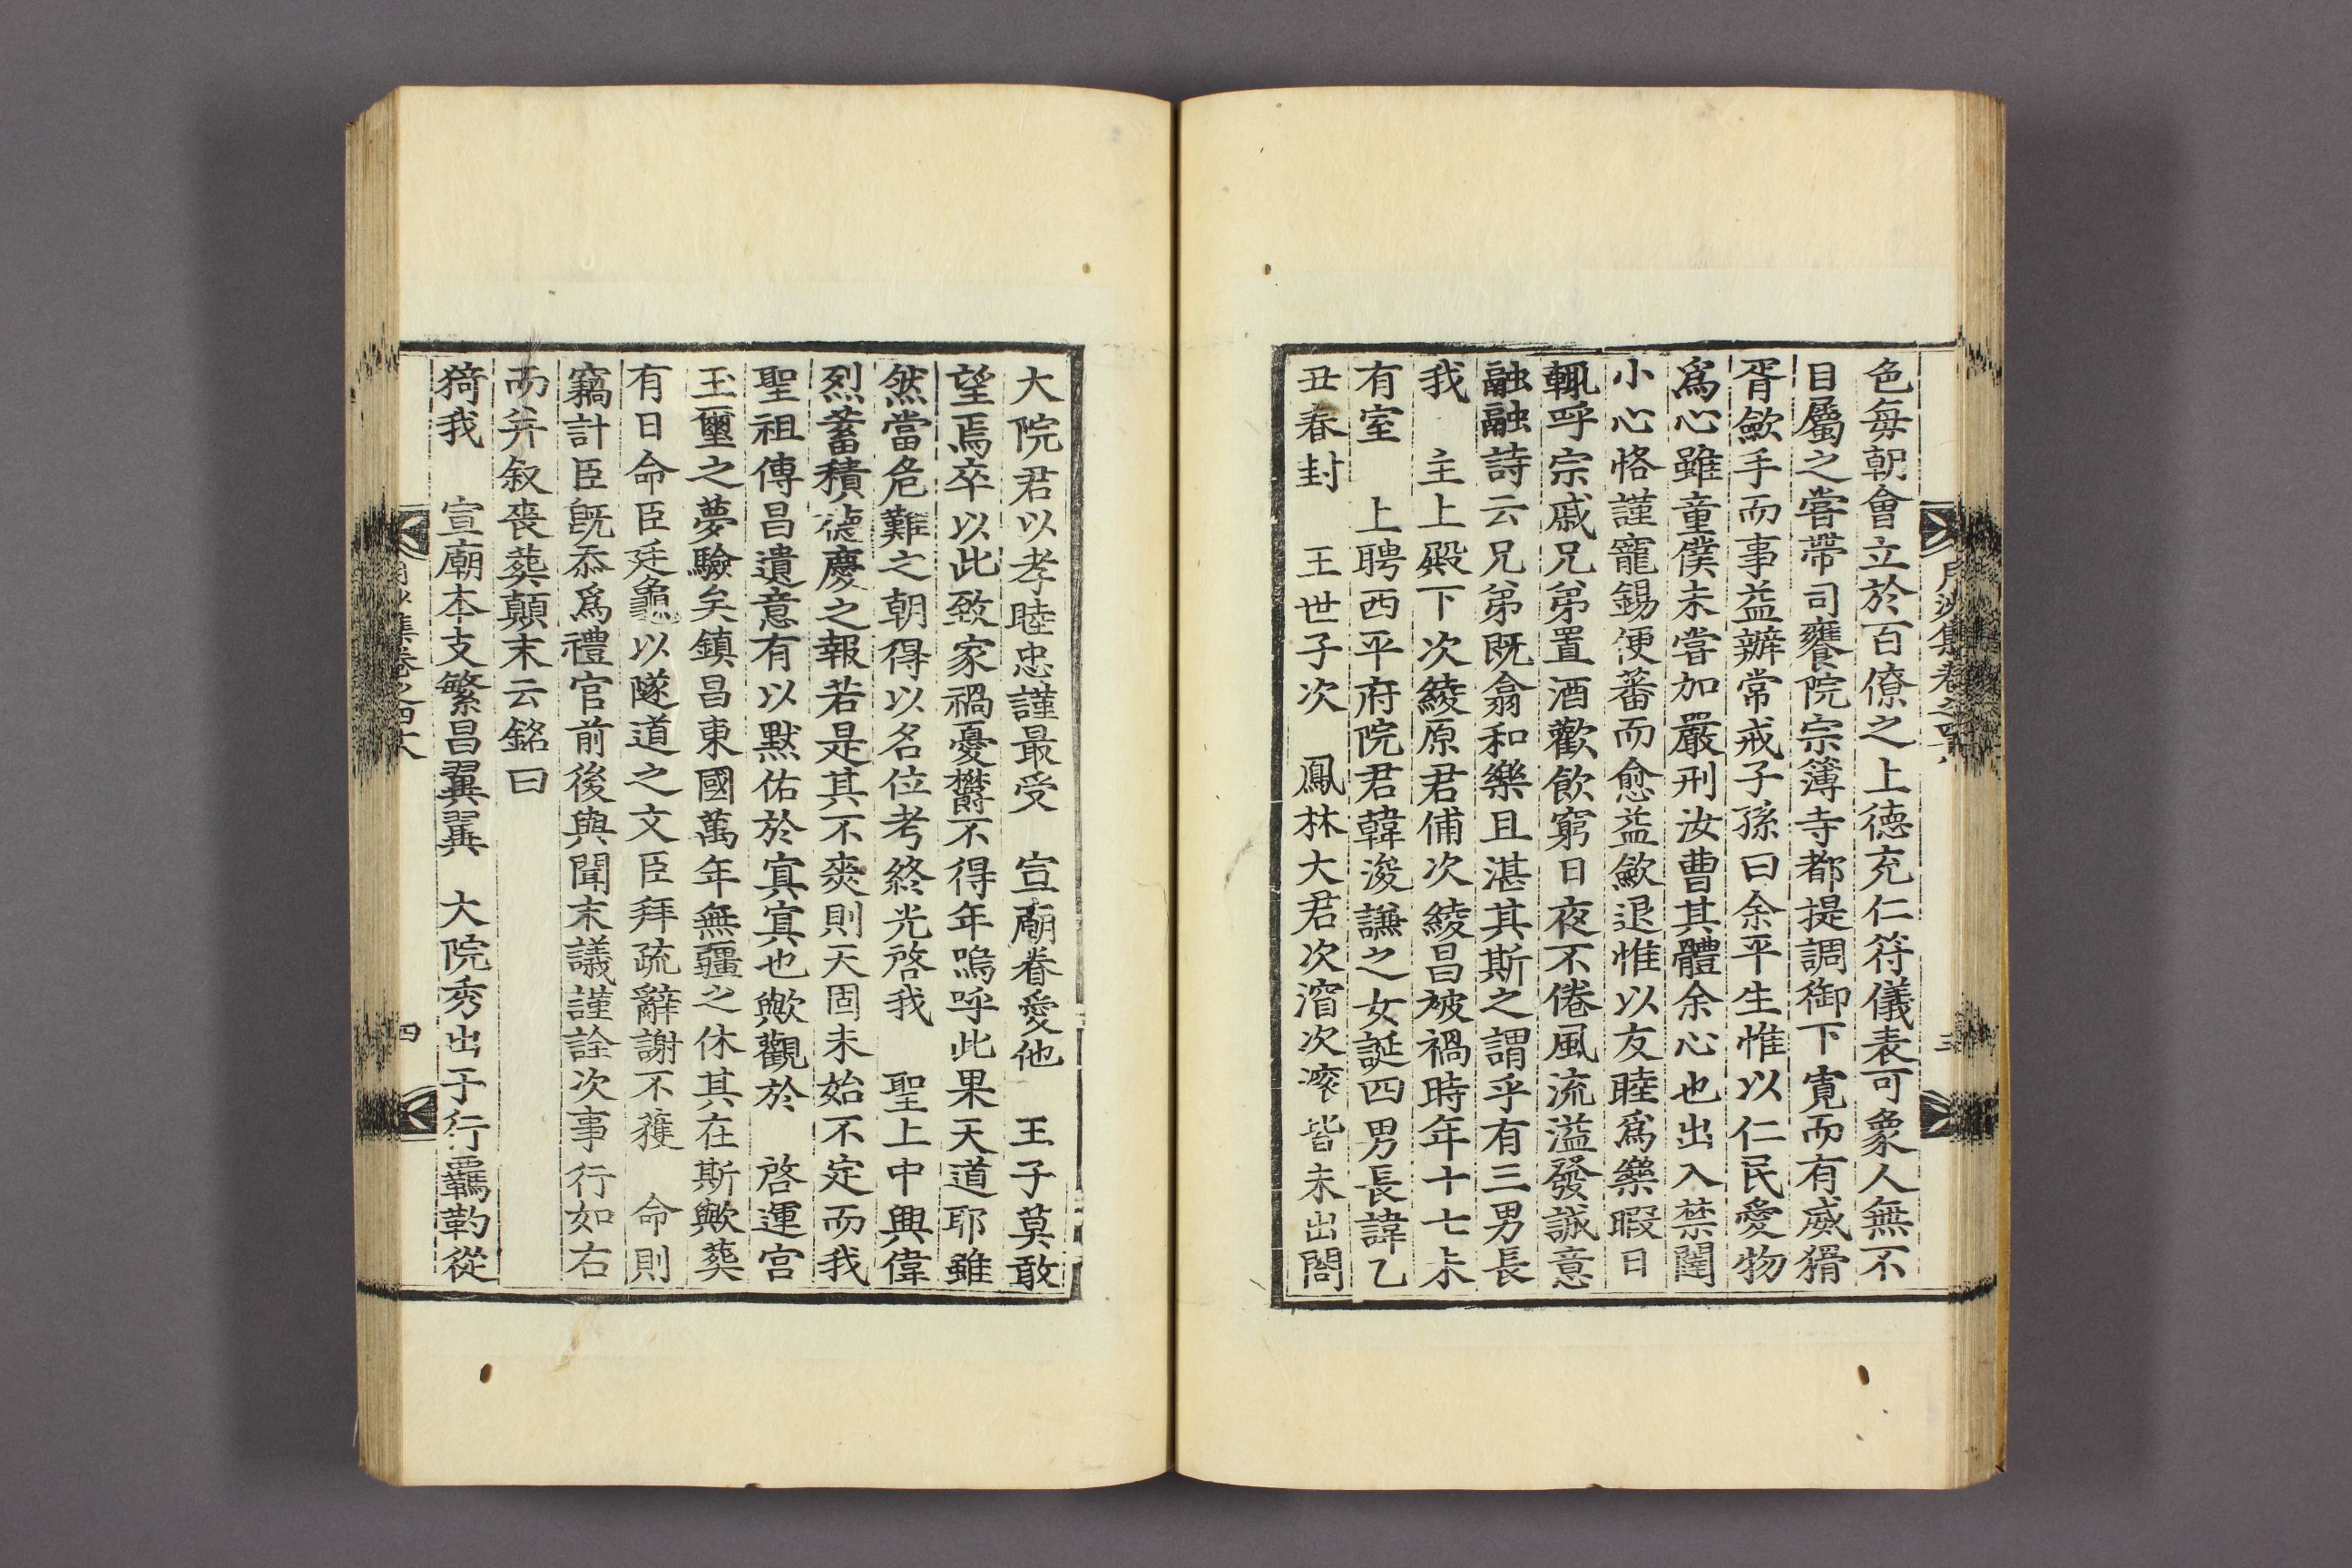 色每朝會立於百僚之上德充仁符儀表可象人無不
目屬之嘗帶司饔院宗簿寺都提調御下寬而有威猾
胥歛手而事益辦常戒子孫曰余平生惟以仁民愛物
爲心雖童僕未嘗加嚴刑汝曹其體余心也出入禁闥
小心恪謹寵錫便蕃而愈益歛退惟以友睦爲樂暇日
輒呼宗戚兄弟置酒歡飮窮日夜不倦風流溢發誠意
融融詩云兄弟旣翕和樂且湛其斯之謂乎有三男長
我 主上殿下次綾原君俌次綾昌被禍時年十七未
有室 上聘西平府院君韓浚謙之女誕四男長諱乙
丑春封 王世子次 鳳林大君次㴭次滾皆未出閤
月沙集卷之四十六
三
大院君以孝睦忠謹最受 宣廟眷愛他 王子莫敢
望焉卒以此致家禍憂欝不得年嗚呼此果天道耶雖
然當危難之朝得以名位考終光啓我 聖上中興偉
烈蓄積德慶之報若是其不爽則天固未始不定而我
聖祖傳昌遺意有以默佑於寘寘也歟觀於 啓運宮
玉璽之夢驗矣鎮昌東國萬年無疆之休其在斯歟葬
有日命臣廷龜以隧道之文臣拜疏辭謝不獲 命則
竊計臣旣忝爲禮官前後與聞末議謹詮次事行如右
而并叙喪葬顚末云銘曰
猗我 宣廟本支繁昌翼翼 大院秀出于行羈靮從
月沙集卷之四十六
四